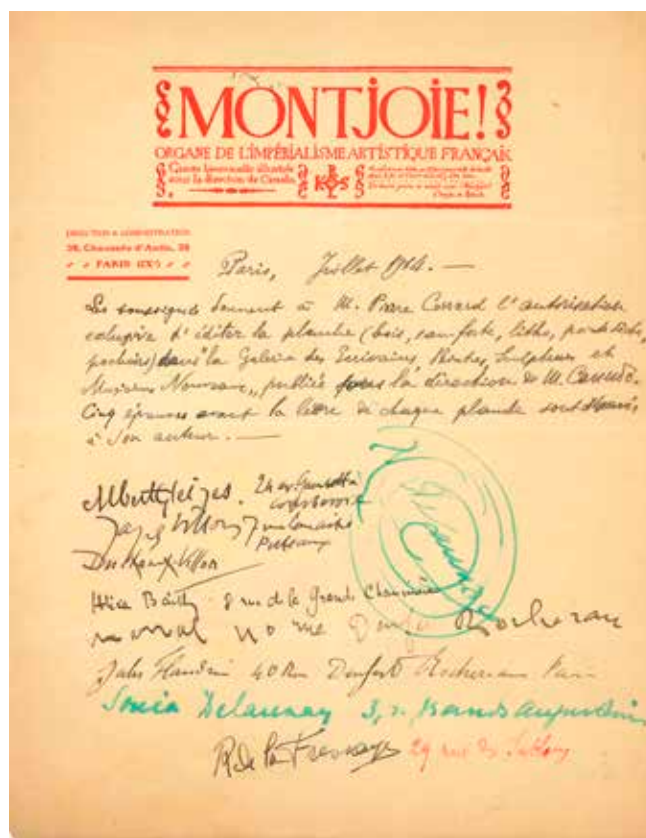 MONTJOIE!
ORGANE DE L'IMPÉRIALISME ARTISTIQUE FRANÇAIS
Gazette bimensuelle illustrée
sous la direction de Canudo.
DIRECTION & ADMINISTRATION
38, Chaussée d'Antin, 38
PARIS (IXe)
Paris, Juillet 1914. —
Les soussignés donnent à M. Pierre Corrard l'autorisation
exclusive d'éditer la planche (bois, eau forte, litho, pointe sèche,
pochoirs) dans "la Galerie des Ecrivains, Peintres, Sculpteurs et
Musiciens Nouveaux", publiée sous la direction de M. Canudo.
Cinq épreuves avant la lettre de chaque planche sont
à son auteur. —
Albert Gleizes. 24 av.
Courbevoie
Jacques Villon 7 rue Lemaître
Puteaux
Duchamp-Villon
Alice Bailly - 8 rue de la Grande Chaumière
rue Denfert Rochereau
Jules Flandrin 40 Rue Denfert Rochereau Paris
Sonia Delaunay 3, r. Grands Augustins
R de la Fresnaye 29 rue des Sablons